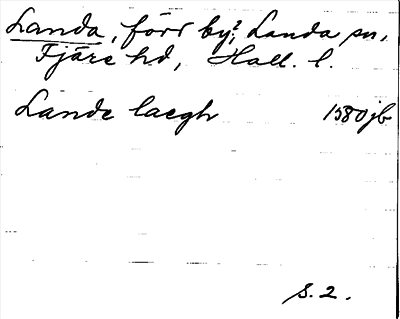 Landa, förr by?, Landa sn,
Fjäre hd, Hall. l.
Lande laegh 1580jb
S. 2.